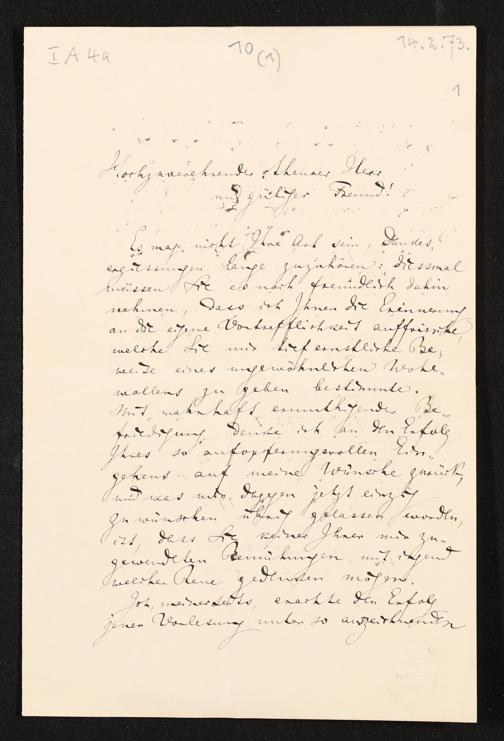 I A 4a
10 (1)
14.2.73.
1
Hochzuverehrender, theurer Herr
und gütiger Freund!
Es mag nicht Ihre Art sein, Dankes,
ergiessungen lange zuzuhören: diessmal
müssen Sie es noch freundlich dahin
nehmen, dass ich Ihnen die Erinnerung
an die eigene Vortrefflichkeit auffrische,
welche Sie mir tief ernstliche Be-
weise eines ungewöhnlichen Wohl-
wollens zu geben bestimmte.
Mit wahrhaft ermuthigender Be-
friedigung denke ich an den Erfolg
Ihres so aufopferungsvollen Ein-
gehens auf meine Wünsche zurück,
und was mir dagegen jetzt einzig
zu wünschen übrig gelassen worden,
ist, dass Sie keiner Ihrer mir zu-
gewendeten Bemühungen mit irgend
welcher Reue gedenken mögen.
Ich, meinerseits, erachte den Erfolg
jener Vorlesung unter so auszeichnenden